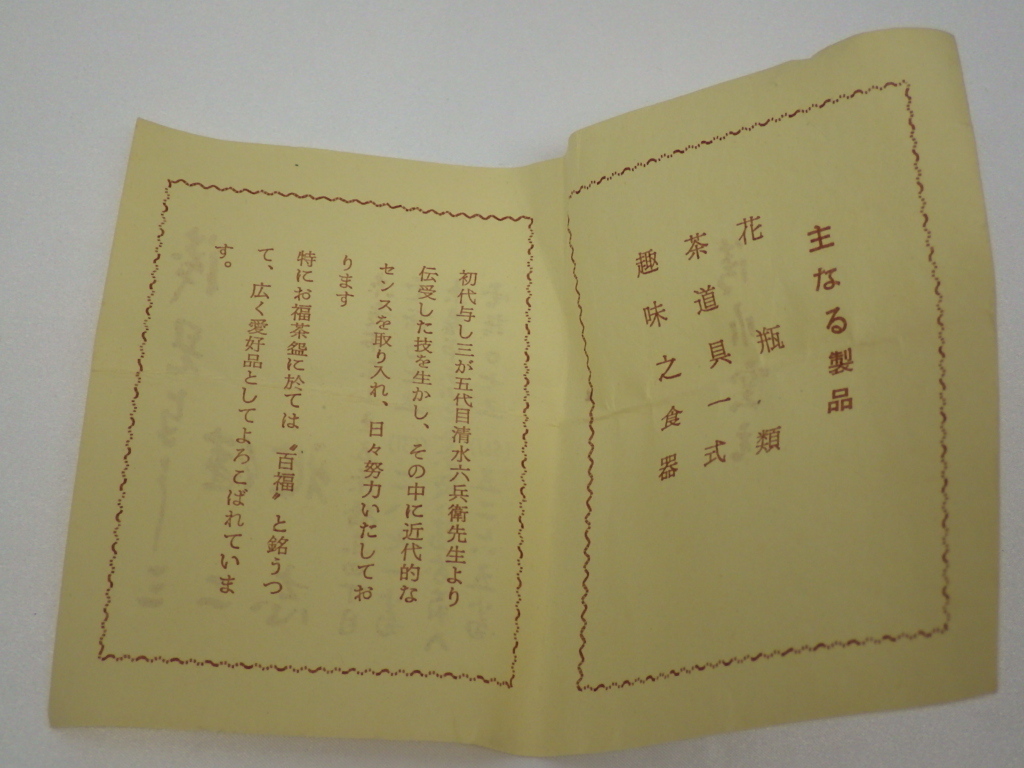 主なる製品
花瓶類
茶道具一式
趣味之食器
初代与し三が五代目清水六兵衛先生より
伝受した技を生かし、その中に近代的な
センスを取り入れ、日々努力いたしてお
ります
特にお福茶盌に於ては〝百福〟と銘うつ
て、広く愛好品としてよろこばれていま
す。